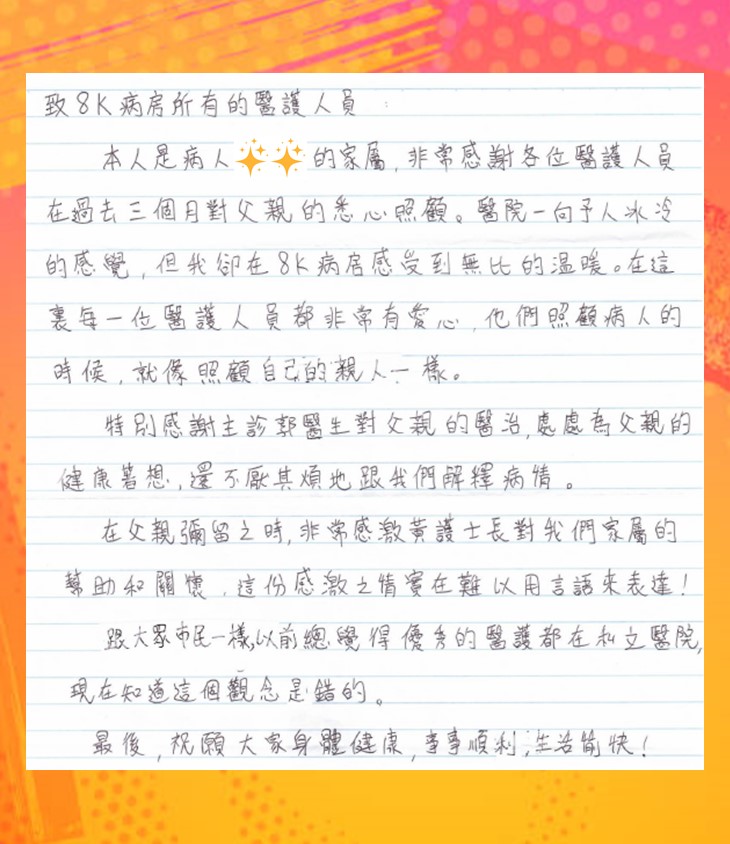 致8K病房所有的醫護人員:
本人是病人 的家屬,非常感謝各位醫護人員
在過去三個月對父親的悉心照顧。醫院一向予人冰冷
的感覺,但我卻在8K病房感受到無比的溫暖。在這
裏每一位醫護人員都非常有愛心,他們照顧病人的
時候,就像照顧自己的親人一樣。
特別感謝主診郭醫生對父親的醫治,處處為父親的
健康著想,還不厭其煩地跟我們解釋病情。
在父親彌留之時,非常感激黃護士長對我們家屬的
幫助和關懷,這份感激之情實在難以用言語來表達!
跟大眾市民一樣,以前總覺得優秀的醫護都在私立醫院,
現在知道這個觀念是錯的。
最後,祝願大家身體健康,事事順利,生活愉快!